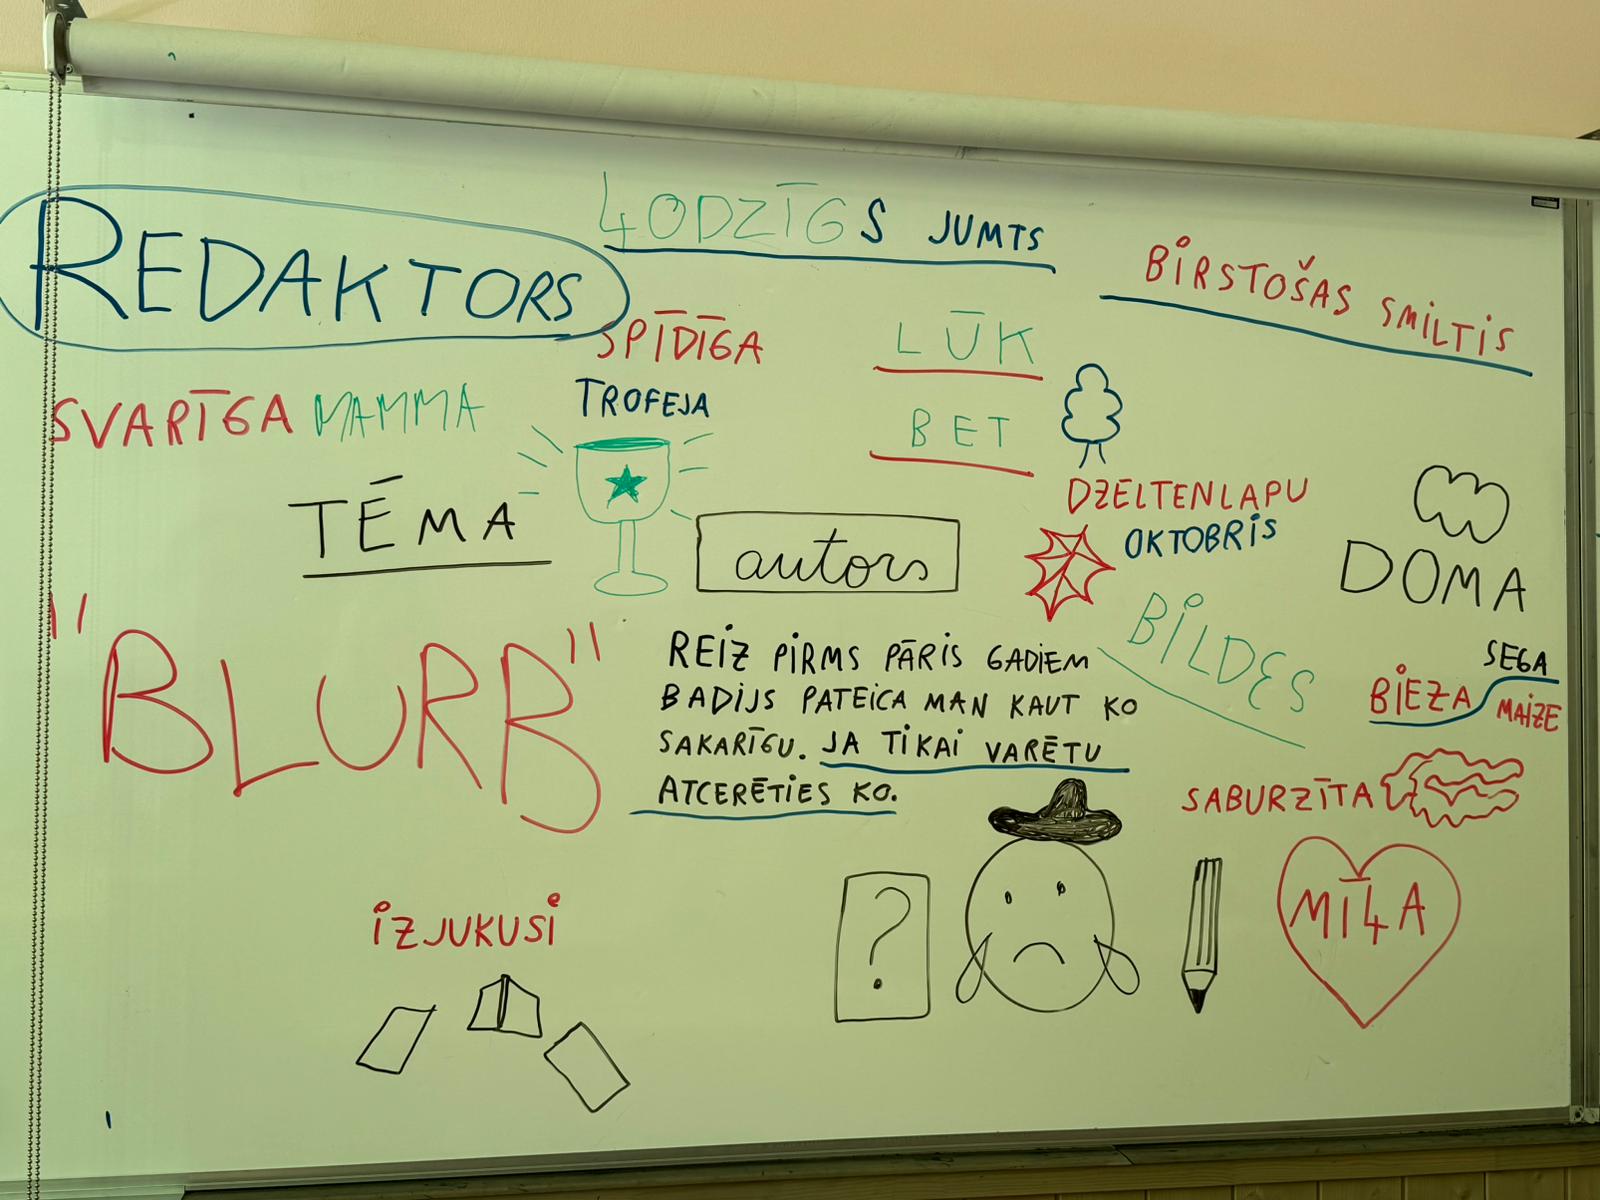 REDAKTORS
ĻODZĪGS JUMTS
BIRSTOŠAS SMILTIS
SPĪDĪGA
TROFEJA
LŪK
BET
SVARĪGA MAMMA
TĒMA
autors
DZELTENLAPU
OKTOBRIS
DOMA
"BLURB"
REIZ PIRMS PĀRIS GADIEM
BADIJS PATEICA MAN KAUT KO
SAKARĪGU. JA TIKAI VARĒTU
ATCERĒTIES KO.
BILDES
SEGA
BIEZA MAIZE
SABURZĪTA
?
MĪĻA
IZJUKUSI